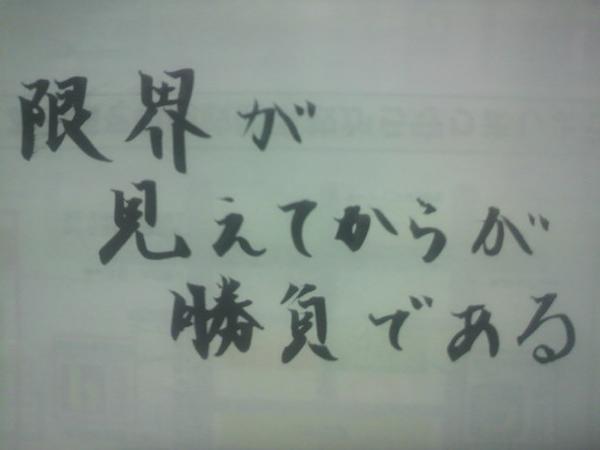 限界が
見えてからが
勝負である